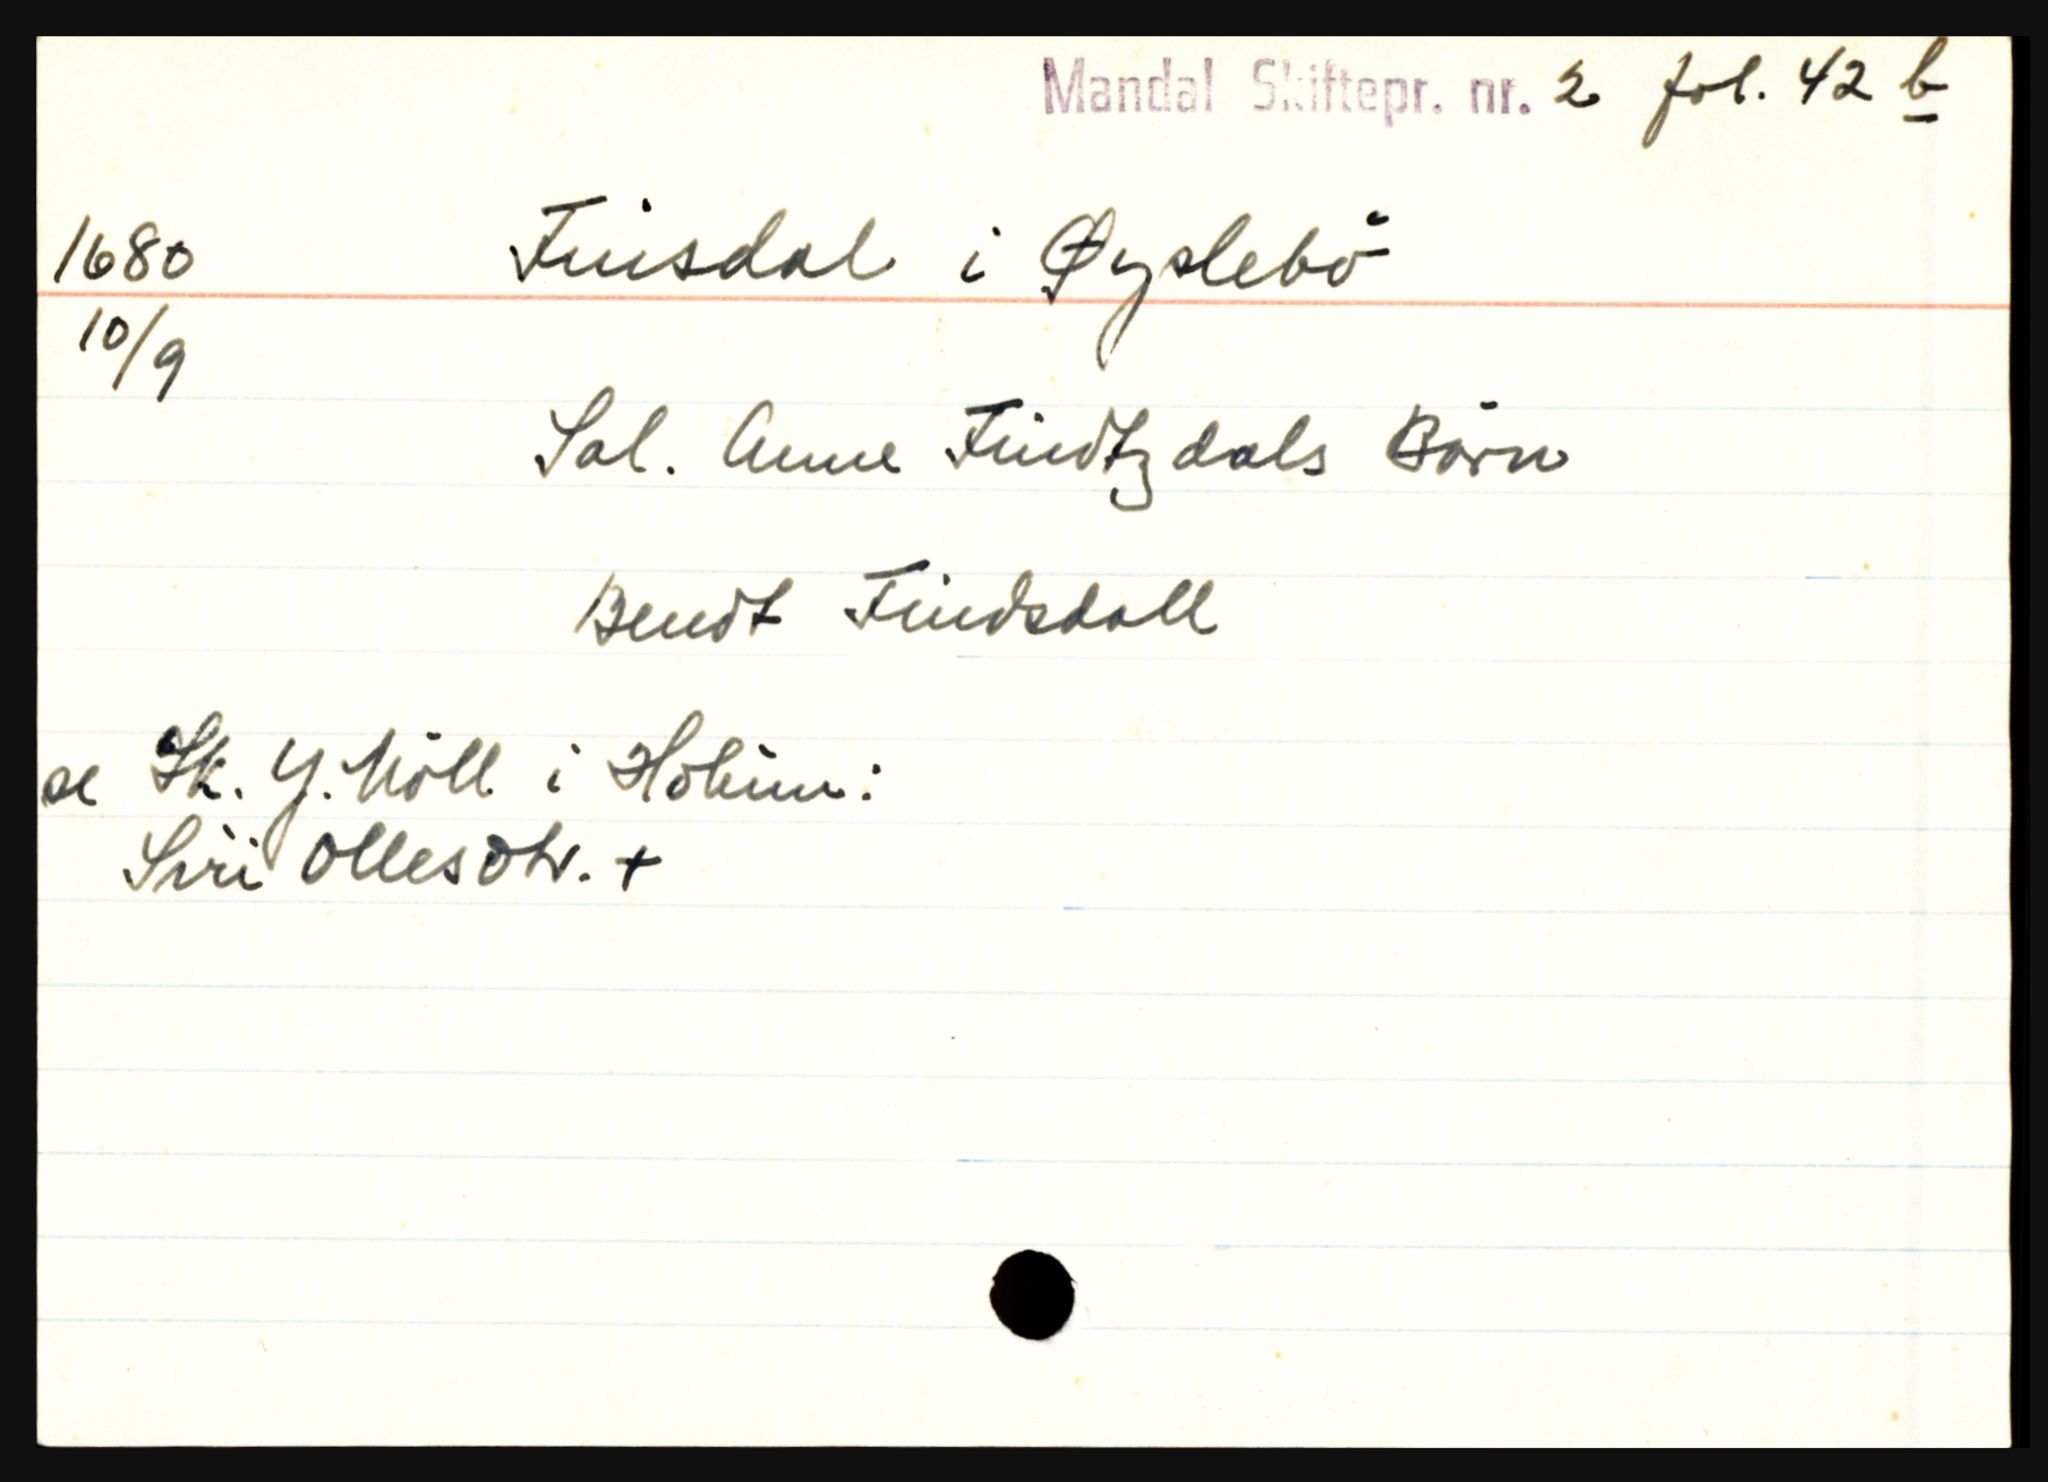 Mandal Skiftepr. nr. 2 fol. 42 b
1680 Finsdal i Øyslebö
10/9
Sal. Anne Findtzdals Börn
Bendt Findsdall
se Sk. Y. Möll i Holum:
Siri Ollesdtr. +